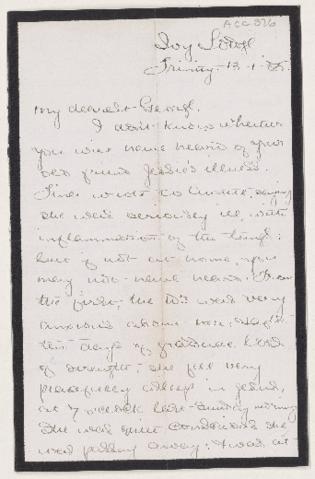 ACC 376
Ivy Lodge
Trinity 13.1.85.
My dearest George.
I don't know whether
you will have heard of your
old friend Jessie's illness.
wrote to saying
she was seriously ill, with
inflammation of the lungs:
but if not at home, you
may not have heard. From
the first, the Drs were very
anxious about her: & after
ten days of gradual loss
of strength, she fell very
peacefully asleep in Jesus,
at 7 o'clock last Sunday morning
She was quite conscious she
was passing away: I was at